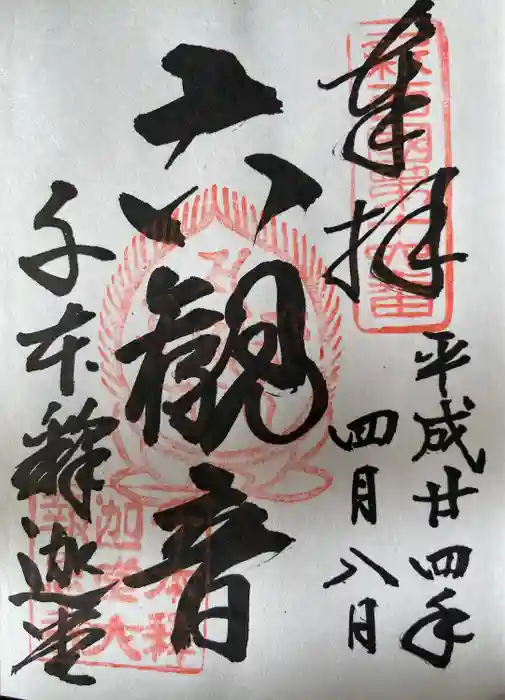 奉拝
平成廿四年
四月八日
六観音
千本釋迦堂